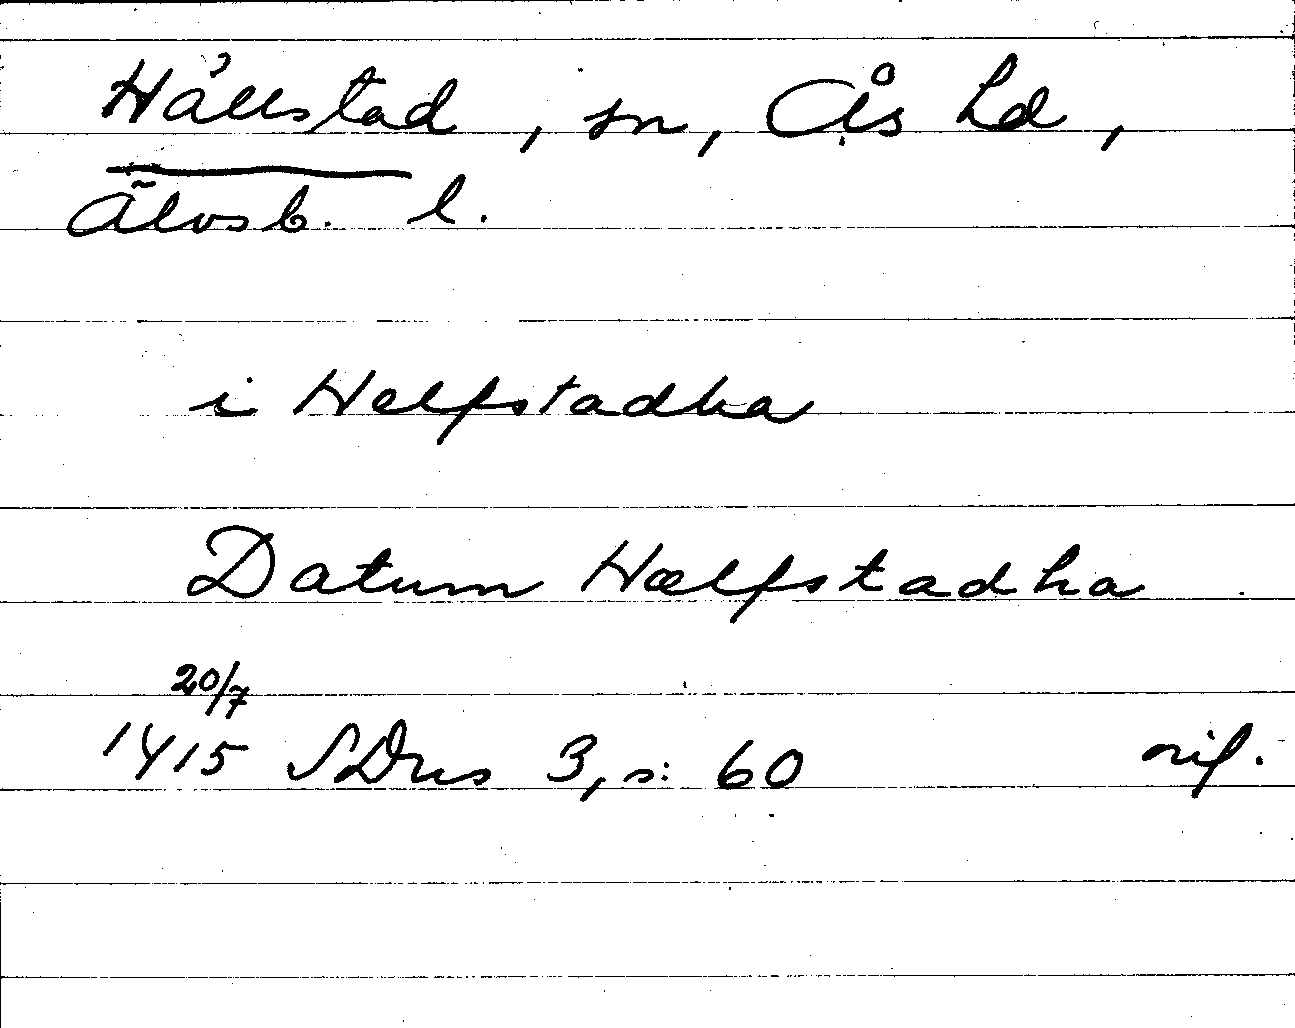 Hällstad, sn, Ås hd,
Älvsb. l.
i Helfstadha
Datum Hælfstadha
20/7
1415 SDns 3, s: 60 orif.